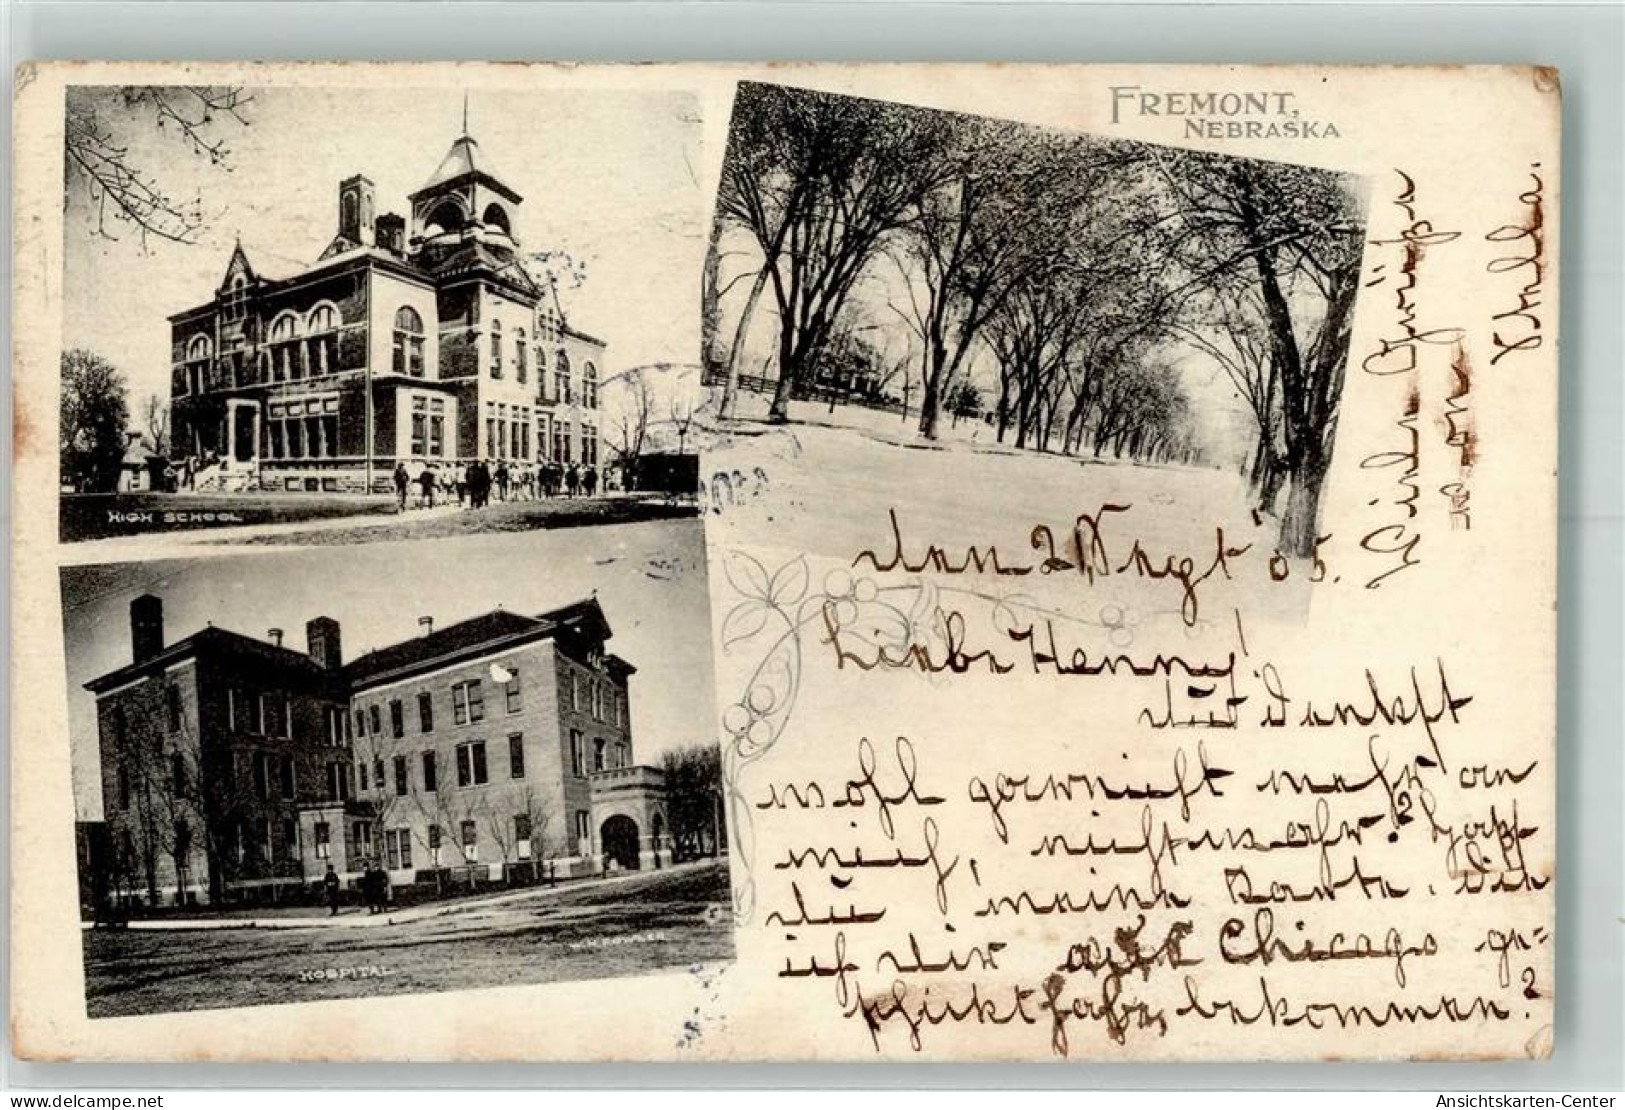 FREMONT,
NEBRASKA
HIGH SCHOOL
HOSPITAL
den 21 Sept 05.
Liebe Henny!
Du denkst
wohl garnicht mehr an
mich, nicht wahr? Hast
Du meine Karte, die
ich dir aus Chicago ge=
schickt habe, bekommen?
Viele Grüße
von
Thla.
delcampe.net
Ansichtskarten-Center